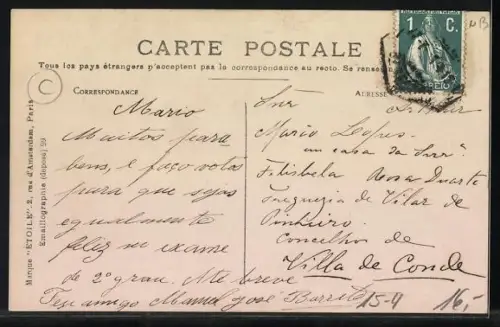 1 C.
CORREIO
NB
CARTE POSTALE
Tous les pays étrangers n'acceptent pas la correspondance au recto. Se rensei
C
CORRESPONDANCE
ADRESSE
Mario
Muitos para
bens, e faço votos
para que sejas
egualmente
feliz no exame
de 2º grau. Até breve
Teu amigo Manuel José Barreto
Snr
Mario Lopes
em casa da Snrª
Filisbela Rosa Duarte
Freguezia de Vilar de
Pinheiro
Concelho de
Villa de Conde
15-4
16,-
Marque "ETOILE". 2, rue d'Amsterdam, Paris
Emaillographie (déposé)